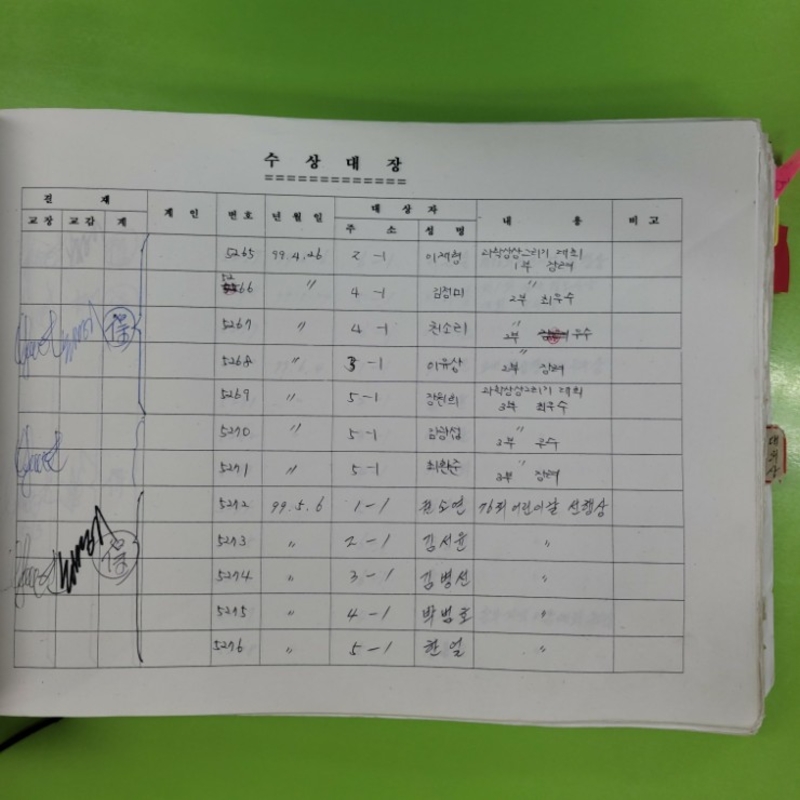 수 상 대 장
결 재 계 인 번호 년 월 일 대 상 자 내 용 비 고
교장 교감 계 주 소 성 명
5265 99.4.26 2-1 이재형 과학상상그리기 대회
1부 장려
5266 〃 4-1 김정미 〃
2부 최우수
5267 〃 4-1 천소리 〃
2부 우수
5268 〃 3-1 이유상 〃
2부 장려
5269 〃 5-1 과학상상그리기 대회
3부 최우수
5270 〃 5-1 〃
3부 우수
5271 〃 5-1 최환준 〃
3부 장려
5272 99.5.6 1-1 76회 어린이날 선행상
5273 〃 2-1 김서윤 〃
5274 〃 3-1 김병선 〃
5275 〃 4-1 박범호 〃
5276 〃 5-1 한얼 〃